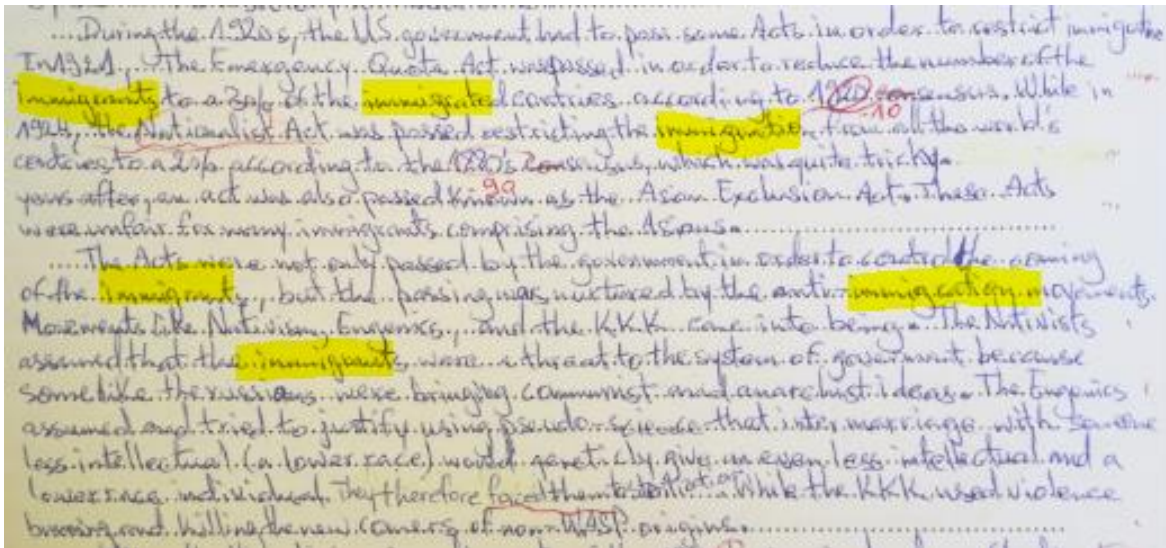 During the 1920s, the U.S. government had to pass some Acts in order to restrict immigration
In 1921, The Emergency Quota Act was passed in order to reduce the number of the
immigrants to a 3% of the immigrated contries according to 1920 consensus. While in
10
1924, the Nationalist Act was passed restricting the immigration from all the world's
contries to a 2% according to the 1820's consensus, which was quite tricky.
90
years after, an act was also passed known as the Asian Exclusion Act. These Acts
were unfair for many immigrants comprising the Asians.
The Acts were not only passed by the government in order to control the coming
of the immigrants, but the passing was nurtured by the anti-immigration movements.
Movements like Nativism, Eugenics, and the KKK came into being. The Nativists
assumed that the immigrants were a threat to the system of goverment because
some like the russians were bringing communist and anarchist ideas. The Eugenics
assumed and tried to justify using pseudo-science that inter marriage with someone
less intellectual (a lower race) would geneticly give un even less intellectual and a
lower race individual. They therefore faced them to While the KKK used violence
burning and killing the new comers of non-WASP origins.